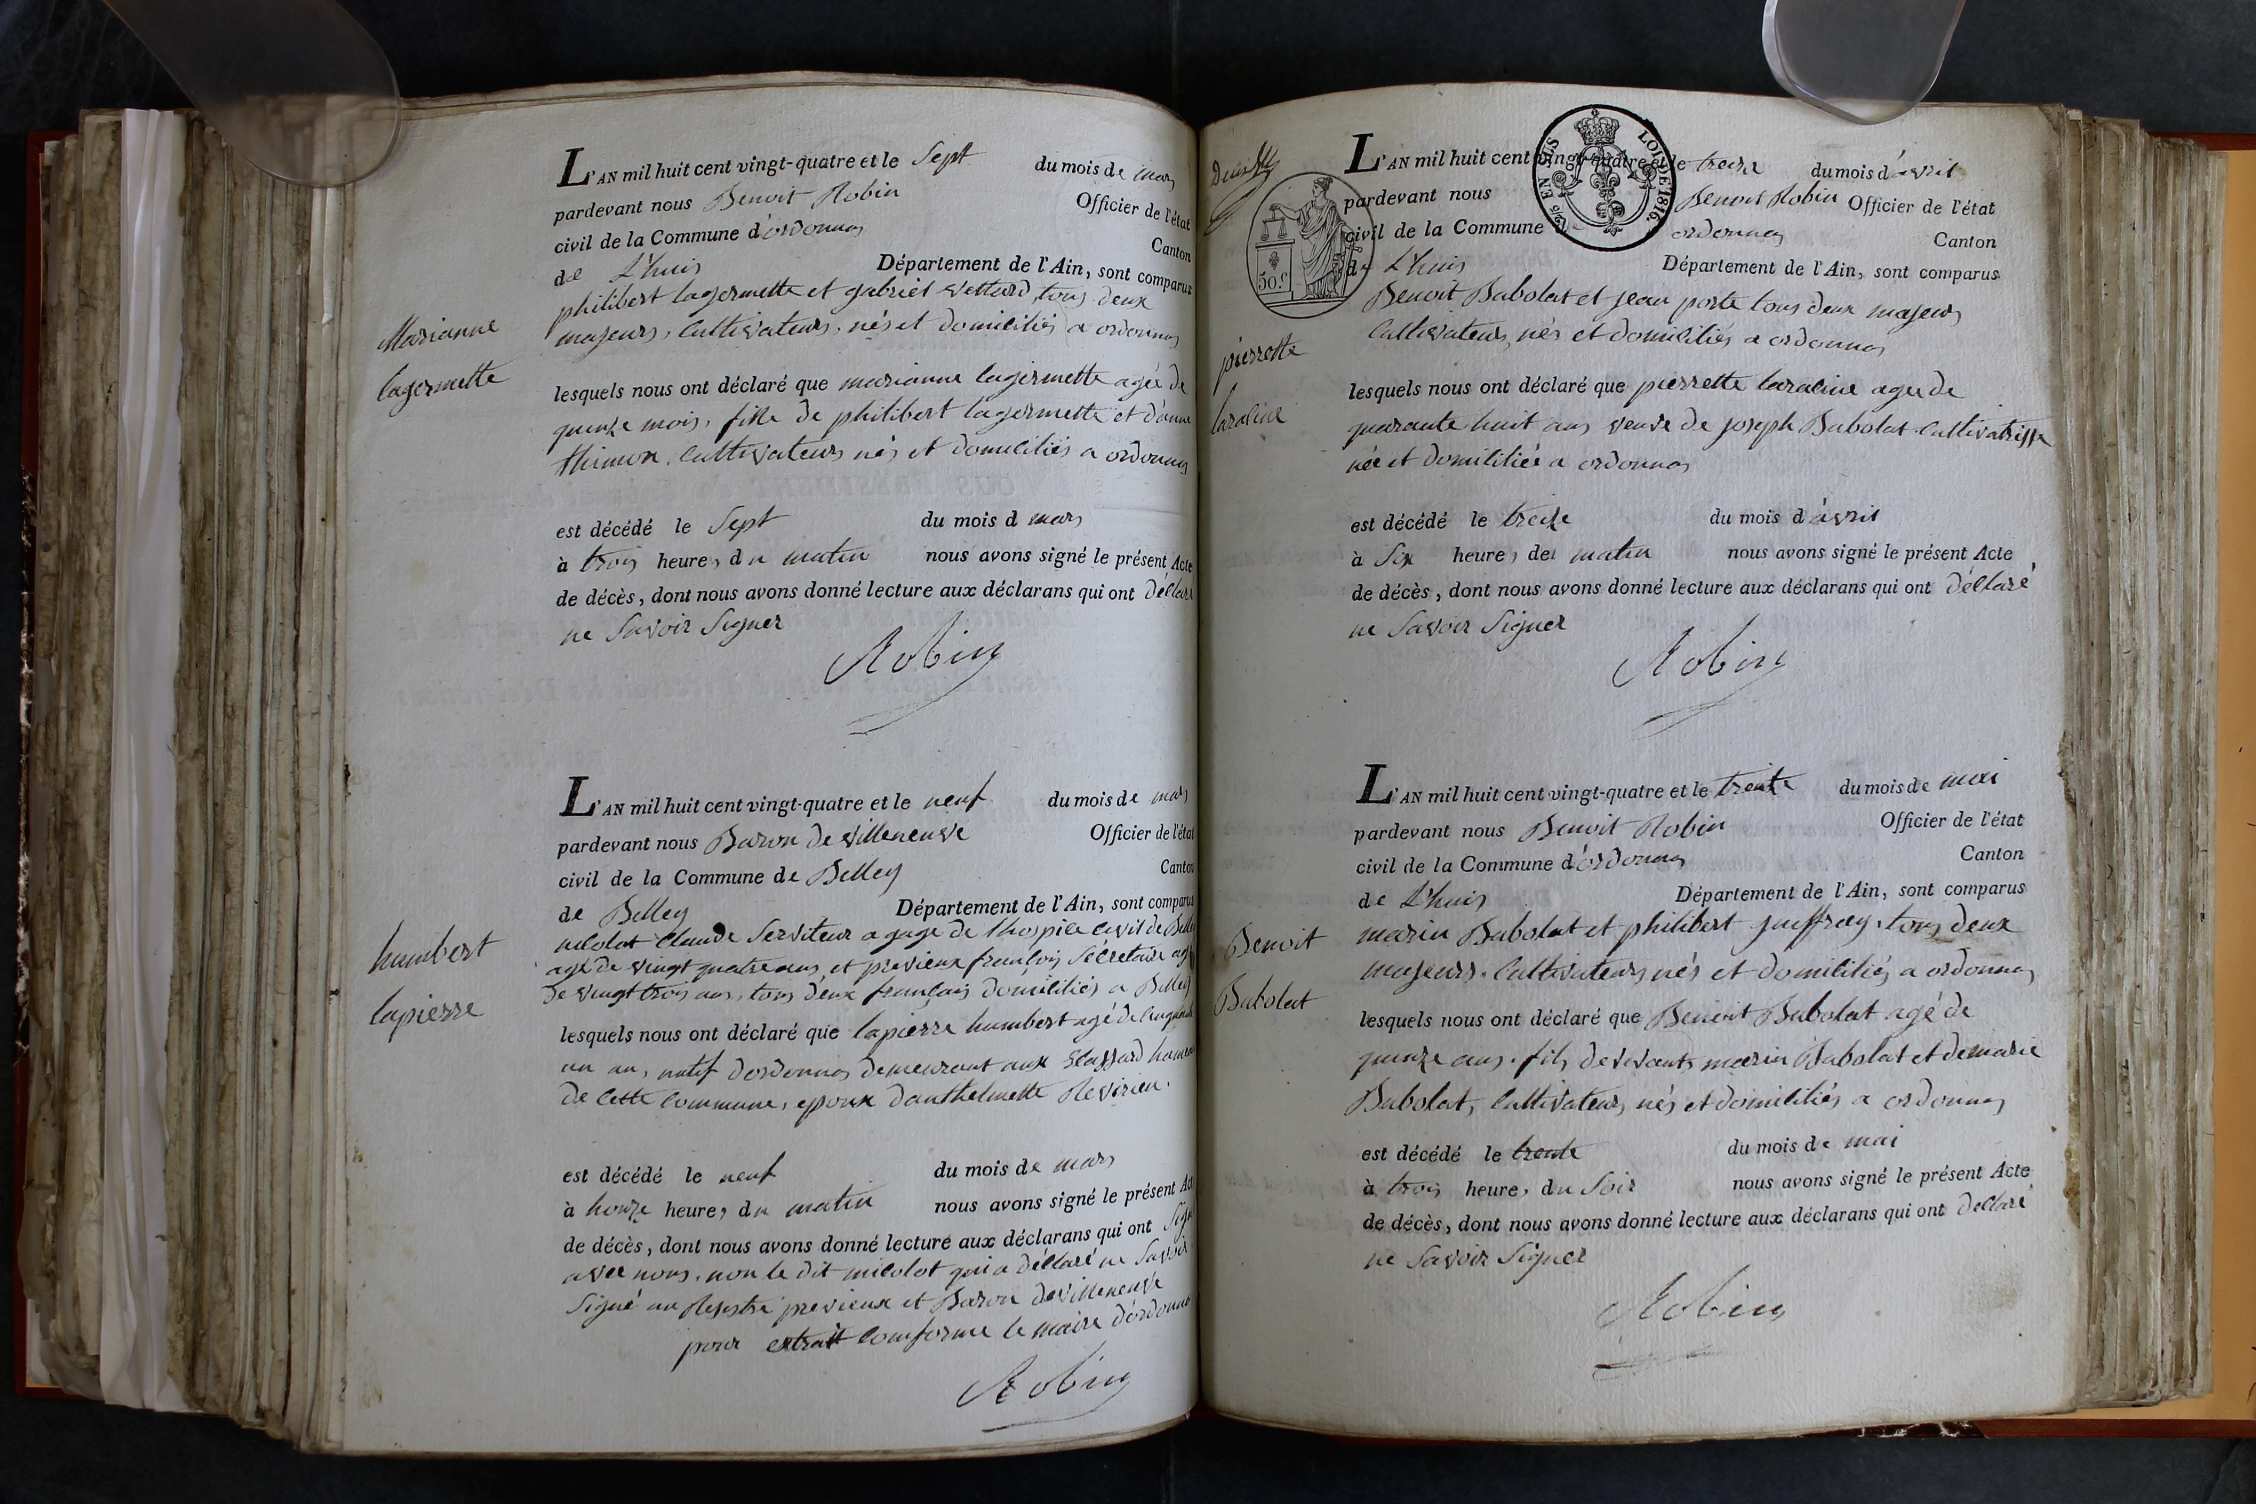 Marianne
lagermette
L'AN mil huit cent vingt-quatre et le Sept du mois de mars
pardevant nous Benoit Robin Officier de l'état
civil de la Commune d'ordonnas Canton
de L'huis Département de l'Ain, sont comparus
philibert lagermette et gabriel vettard tous deux
majeurs, Cultivateurs, nés et domiciliés a ordonnas
lesquels nous ont déclaré que marianne lagermette agée de
quinze mois, fille de philibert lagermette et d'anne
thimon, Cultivateurs nés et domiciliés a ordonnas
est décédé le Sept du mois d mars
à trois heures du matin nous avons signé le présent Acte
de décès, dont nous avons donné lecture aux déclarans qui ont déclaré
ne Savoir Signer
Robin
humbert
lapierre
L'AN mil huit cent vingt-quatre et le neuf du mois de mars
pardevant nous Baron de villeneuve Officier de l'état
civil de la Commune de Belley Canton
de Belley Département de l'Ain, sont comparus
Claude Serviteur a gage de l'hospice Civil de Belley
agé de vingt quatre ans et previeux francois Sécretaire agé
de vingt trois ans, tous deux francais domiciliés a Belley
lesquels nous ont déclaré que lapierre humbert agé de Cinquante
un an, natif d'ordonnas demeurant aux hameau
de Cette Commune, epoux d'anthelmette Revirieu.
est décédé le neuf du mois de mars
à honze heures du matin nous avons signé le présent Acte
de décès, dont nous avons donné lecture aux déclarans qui ont Signé
avec nous, non le dit micolot qui a déclaré ne Savoir
Signé au Registre previeux et Baron de villeneuve
pour extrait Comforme le maire d'ordonnas
Robin
50.c
EN SUS
LOI DE 1816.
L'AN mil huit cent vingt-quatre et le treize du mois d'avril
pardevant nous Benoit Robin Officier de l'état
civil de la Commune ordonnas Canton
de L'huis Département de l'Ain, sont comparus
Benoit Babolat et jean porte tous deux majeurs
Cultivateurs, nés et domiciliés a ordonnas
pierrette
laraline
lesquels nous ont déclaré que pierrette laraline agee de
quarante huit ans veuve de joseph Babolat Cultivatrisse
née et domiliciée a ordonnas
est décédé le treize du mois d'avril
à Six heures de matin nous avons signé le présent Acte
de décès, dont nous avons donné lecture aux déclarans qui ont déclaré
ne Savoir Signer
Robin
L'AN mil huit cent vingt-quatre et le trente du mois de mai
pardevant nous Benoit Robin Officier de l'état
civil de la Commune d'ordonnas Canton
de L'huis Département de l'Ain, sont comparus
Benoit
Babolat
marin Babolat et philibert juffray, tous deux
majeurs. Cultivateurs nés et domiciliés a ordonnas
lesquels nous ont déclaré que Benoit Babolat agé de
quinze ans. fils de vivants marin Babolat et de marie
Babolat, Cultivateurs nés et domiciliés a ordonnas
est décédé le trente du mois de mai
à trois heures du Soir nous avons signé le présent Acte
de décès, dont nous avons donné lecture aux déclarans qui ont déclaré
ne Savoir Signer
Robin